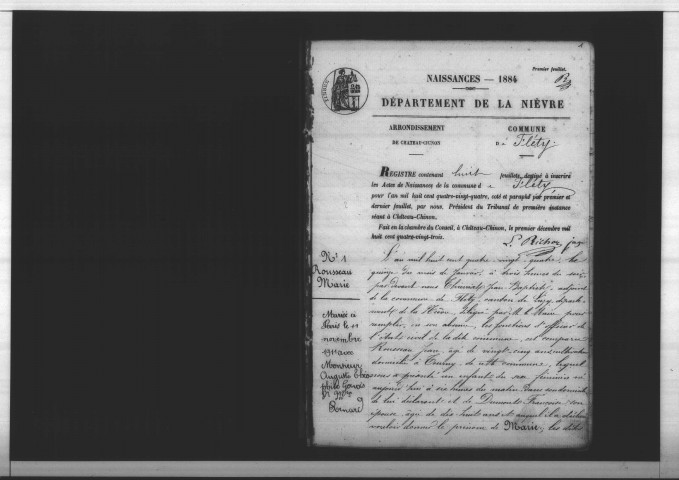 1
Premier feuillet.
NAISSANCES — 1884
TIMBRE
DÉPARTEMENT DE LA NIÈVRE
ARRONDISSEMENT
DE CHATEAU-CHINON
COMMUNE
D e Fléty.
REGISTRE contenant huit feuillets, destiné à inscrire
les Actes de Naissances de la commune d e Fléty
pour l'an mil huit cent quatre-vingt-quatre, coté et paraphé par premier et
dernier feuillet, par nous, Président du Tribunal de première instance
séant à Château-Chinon.
Fait en la chambre du Conseil, à Château-Chinon, le premier décembre mil
huit cent quatre-vingt-trois.
N° 1
Rousseau
Marie
Mariée à
Paris le 11
novembre
1911 avec
Monsieur
Auguste
L'an mil huit cent quatre-vingt-quatre, le
quinze du mois de Janvier à trois heures du soir,
par devant nous Jean Baptiste, adjoint
de la commune de Fléty, canton de Luzy, départe-
ment de la Nièvre, délégué par M. le Maire pour
remplir, en son absence, les fonctions d'officier de
l'état civil de la dite commune, est comparu
Rousseau Jean, âgé de vingt-cinq ans
domicilié à de cette commune, lequel
nous a présenté un enfant du sexe féminin né
aujourd'hui à six heures du matin dans son domicile
de lui déclarant et de Françoise son
épouse, âgée de dix-huit ans et auquel il a déclaré
vouloir donner le prénom de Marie; les dites